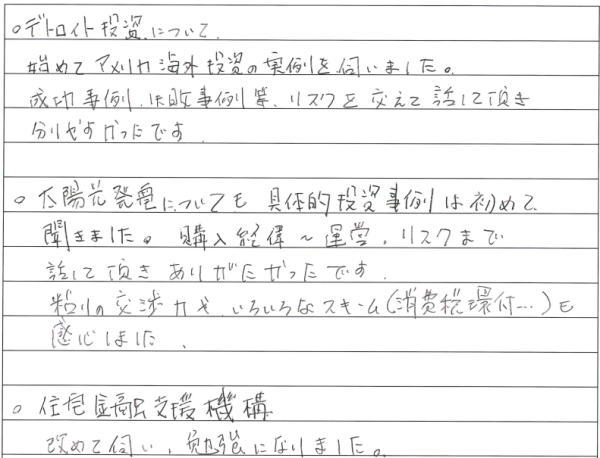 ○デトロイト投資について
始めてアメリカ海外投資の実例を伺いました。
成功事例、失敗事例等、リスクを交えて話して頂き
分りやすかったです
○太陽光発電についても具体的投資事例は初めて
聞きました。購入経偉～運営、リスクまで
話して頂きありがたかったです.
粘りの交渉力や、いろいろなスキーム(消費税環付…)も
感心しました、
○住宅金融支援機構
改めて伺い、勉強になりました。